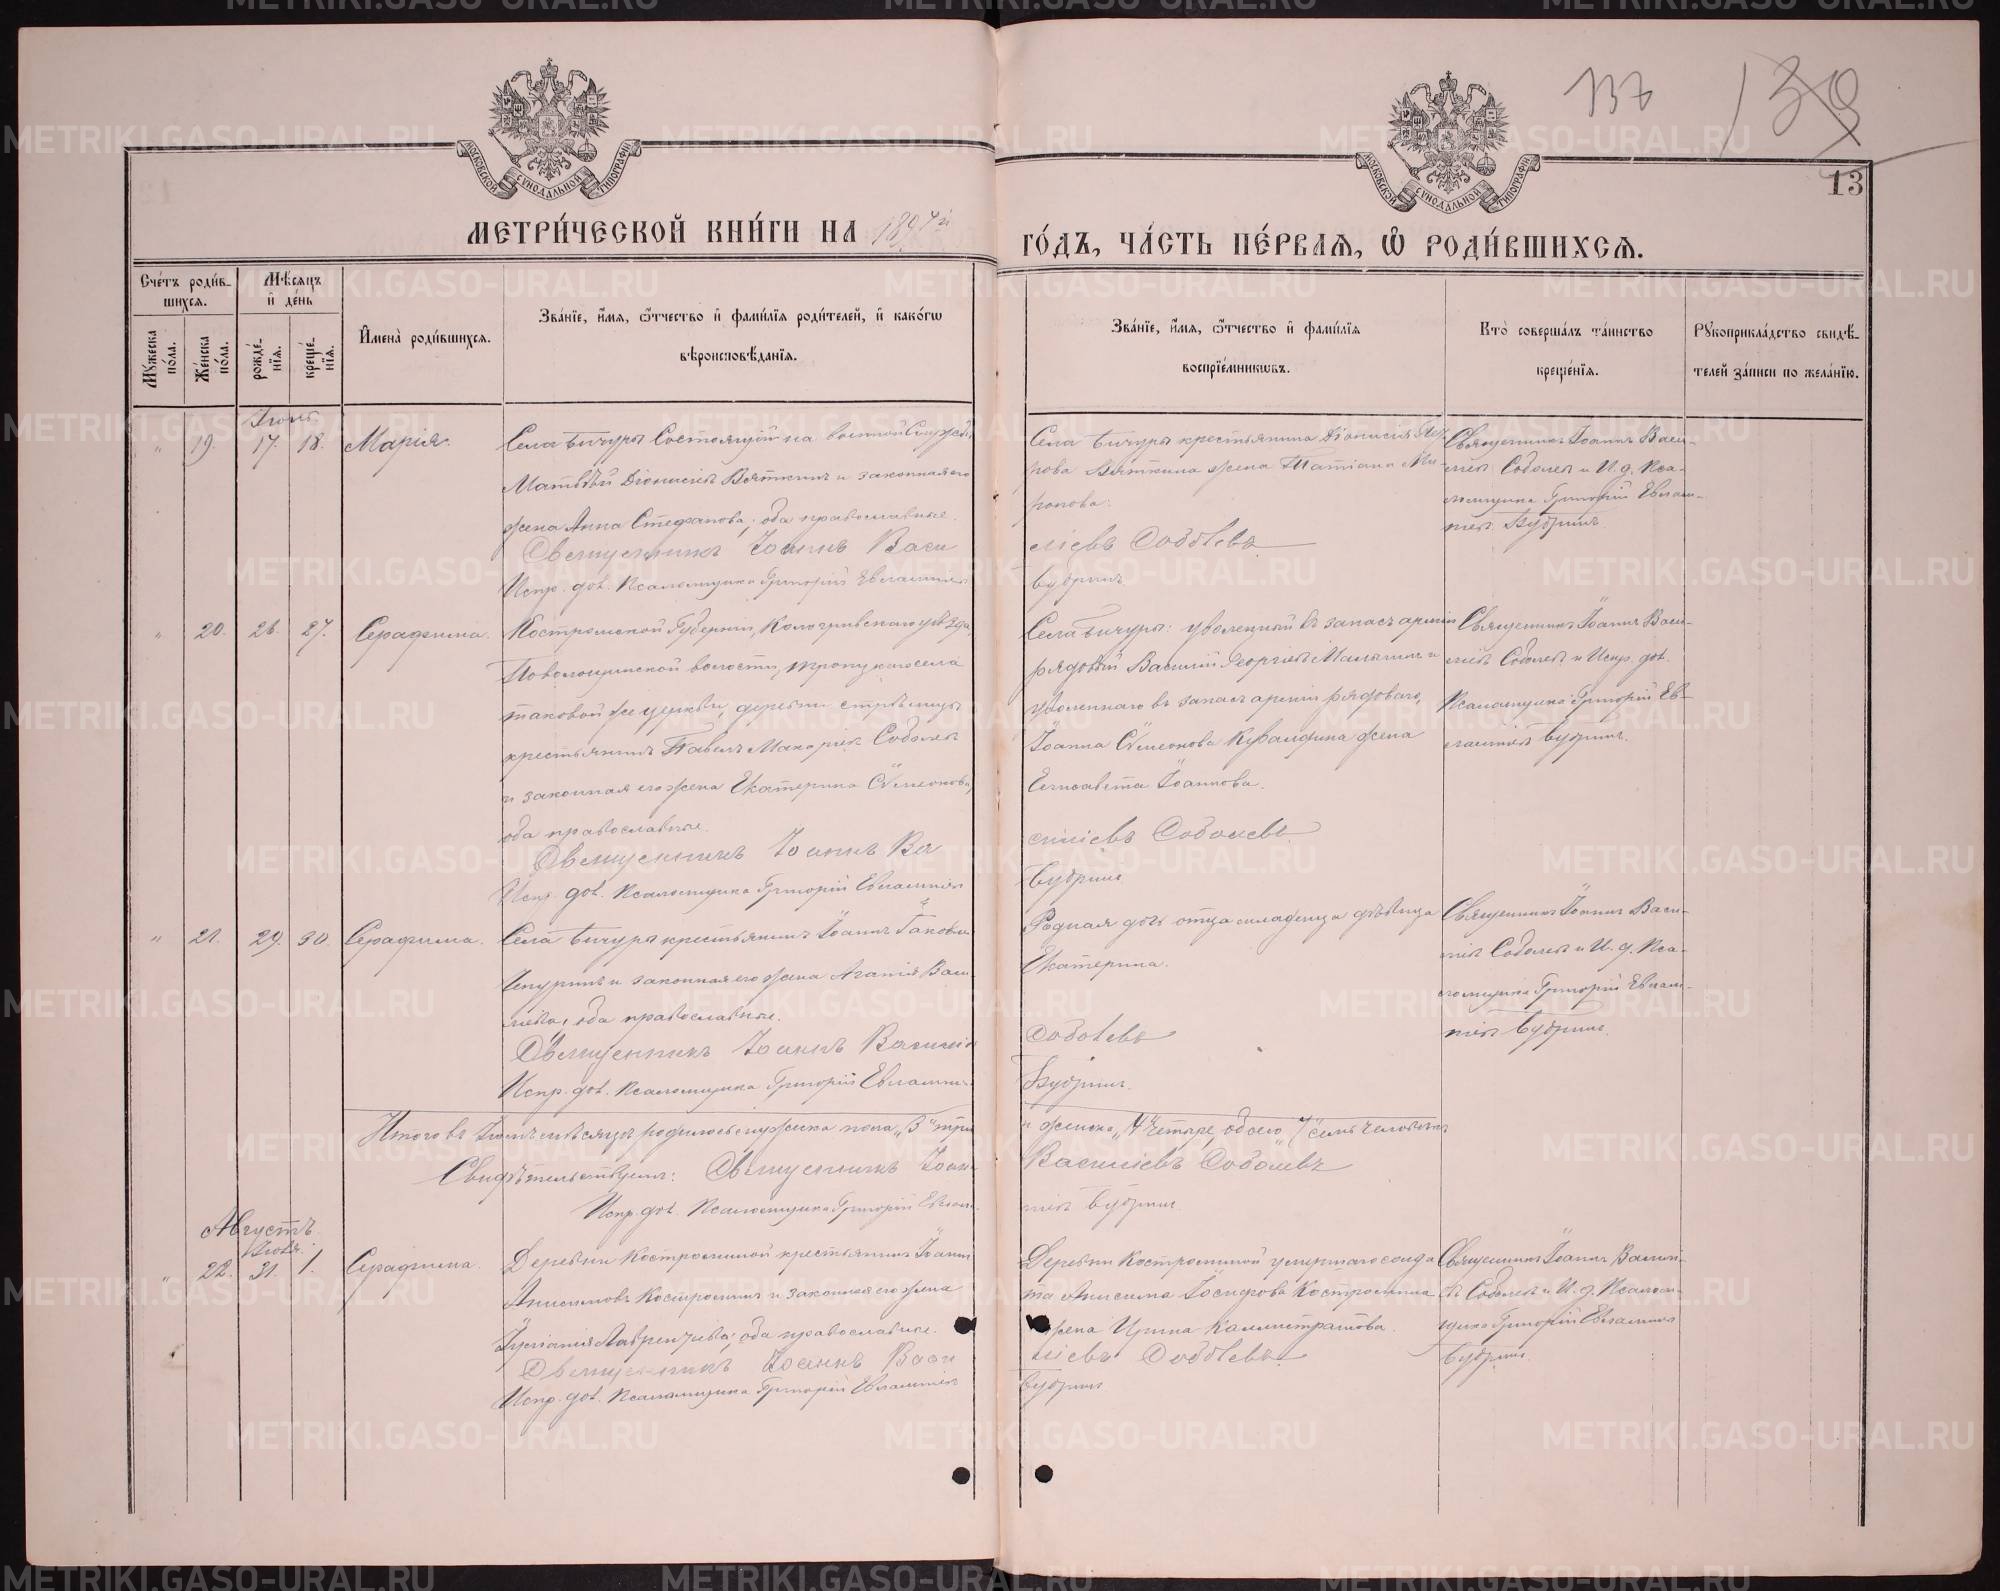 137
139
13
МОСКОВСКОЙ СѴНОДАЛЬНОЙ ТИПОГРАФІИ
МОСКОВСКОЙ СѴНОДАЛЬНОЙ ТИПОГРАФІИ
МЕТРИ́ЧЕСКОЙ КНИ́ГИ НА 1897й
ГО́ДЪ, ЧА́СТЬ ПЕ́РВАЯ, Ѡ РОДИ́ВШИХСЯ.
Сче́тъ роди́в-
шихся.
Мꙋ́жеска по́ла.
Же́нска по́ла.
Мѣ́сяцъ
и де́нь
рожде́-
нїя.
креще́-
нїя.
И҆мена̀ роди́вшихся.
Зва́нїе, и҆́мя, ѻ҆́тчество и҆ фами́лїя роди́телей, и҆ како́гѡ
вѣроисповѣ́данїя.
Зва́нїе, и҆́мя, ѻ҆́тчество и҆ фами́лїя
воспрїе́мникѡвъ.
Кто̀ соверша́лъ та́инство
креще́нїя.
Рꙋкоприкла́дство свидѣ́-
телей за́писи по жела́нїю.
Іюль
" 19. 17. 18. Марія.
Села Бичуры Состоящій на военной Службѣ
Матѳѣй Діонисіевъ Вяткинъ и законная его
жена Анна Стефанова, оба православные.
Священникъ Іоаннъ Васи
Испр. дол. Псаломщика Григорій Евлампіевъ
Села Бичуры крестьянина Діонисія
Вяткина жена Татіана Ми-
ронова.
ліевъ Соболевъ
Бубринъ
Священникъ Іоаннъ Васи-
ліевъ Соболевъ и И. д. Пса-
ломщика Григорій Евлам-
піевъ Бубринъ
" 20. 26. 27. Серафима.
Костромской Губерніи, Кологривскаго уѣзда,
волости, села
таковой же церкви, деревни
крестьянинъ Павелъ Макаріевъ Соболевъ
и законная его жена Екатерина Сѵмеонова,
оба православные.
Священникъ Іоаннъ Ва
Испр. дол. Псаломщика Григорій Евлампіевъ
Села Бичуры: уволенный въ запасъ арміи
рядовый Василій Георгіевъ и
уволеннаго въ запасъ арміи рядоваго,
Іоанна Сѵмеонова жена
Елисавета Іоаннова.
силіевъ Соболевъ
Бубринъ
Священникъ Іоаннъ Васи-
ліевъ Соболевъ и Испр. дол.
Псаломщика Григорій Ев-
лампіевъ Бубринъ.
" 21. 29. 30. Серафима.
Села Бичуры крестьянинъ Іоаннъ Іаковл.
и законная его жена Агапія Васи-
ліева, оба православные.
Священникъ Іоаннъ Василіев
Испр. дол. Псаломщика Григорій Евлампі
Родная дочь отца младенца дѣвица
Екатерина.
Соболевъ
Бубринъ.
Священникъ Іоаннъ Васи-
ліевъ Соболевъ и И. д. Пса-
ломщика Григорій Евлам-
піевъ Бубринъ.
Итого въ Іюлѣ мѣсяцѣ родилось мужска пола „3" три
и женска „4" четыре, обоего „7" семь человѣкъ
Свидѣтельствуемъ: Священникъ Іоан
Василіевъ Соболевъ
Испр. дол. Псаломщика Григорій Евлам-
піевъ Бубринъ.
Августъ.
Іюля.
" 22. 31. 1. Серафима.
Деревни Костроминой крестьянинъ Іоаннъ
Анисимовъ Костроминъ и законная его жена
Лаврентіева, оба православные.
Священникъ Іоаннъ Васи
Испр. дол. Псаломщика Григорій Евлампіевъ
Деревни Костроминой умершаго солда
та Анисима Іосифова Костромина
жена Ирина Каллистратова.
ліевъ Соболевъ
Бубринъ
Священникъ Іоаннъ Василі-
евъ Соболевъ и И. д. Псалом-
щика Григорій Евлампіевъ
Бубринъ.
METRIKI.GASO-URAL.RU